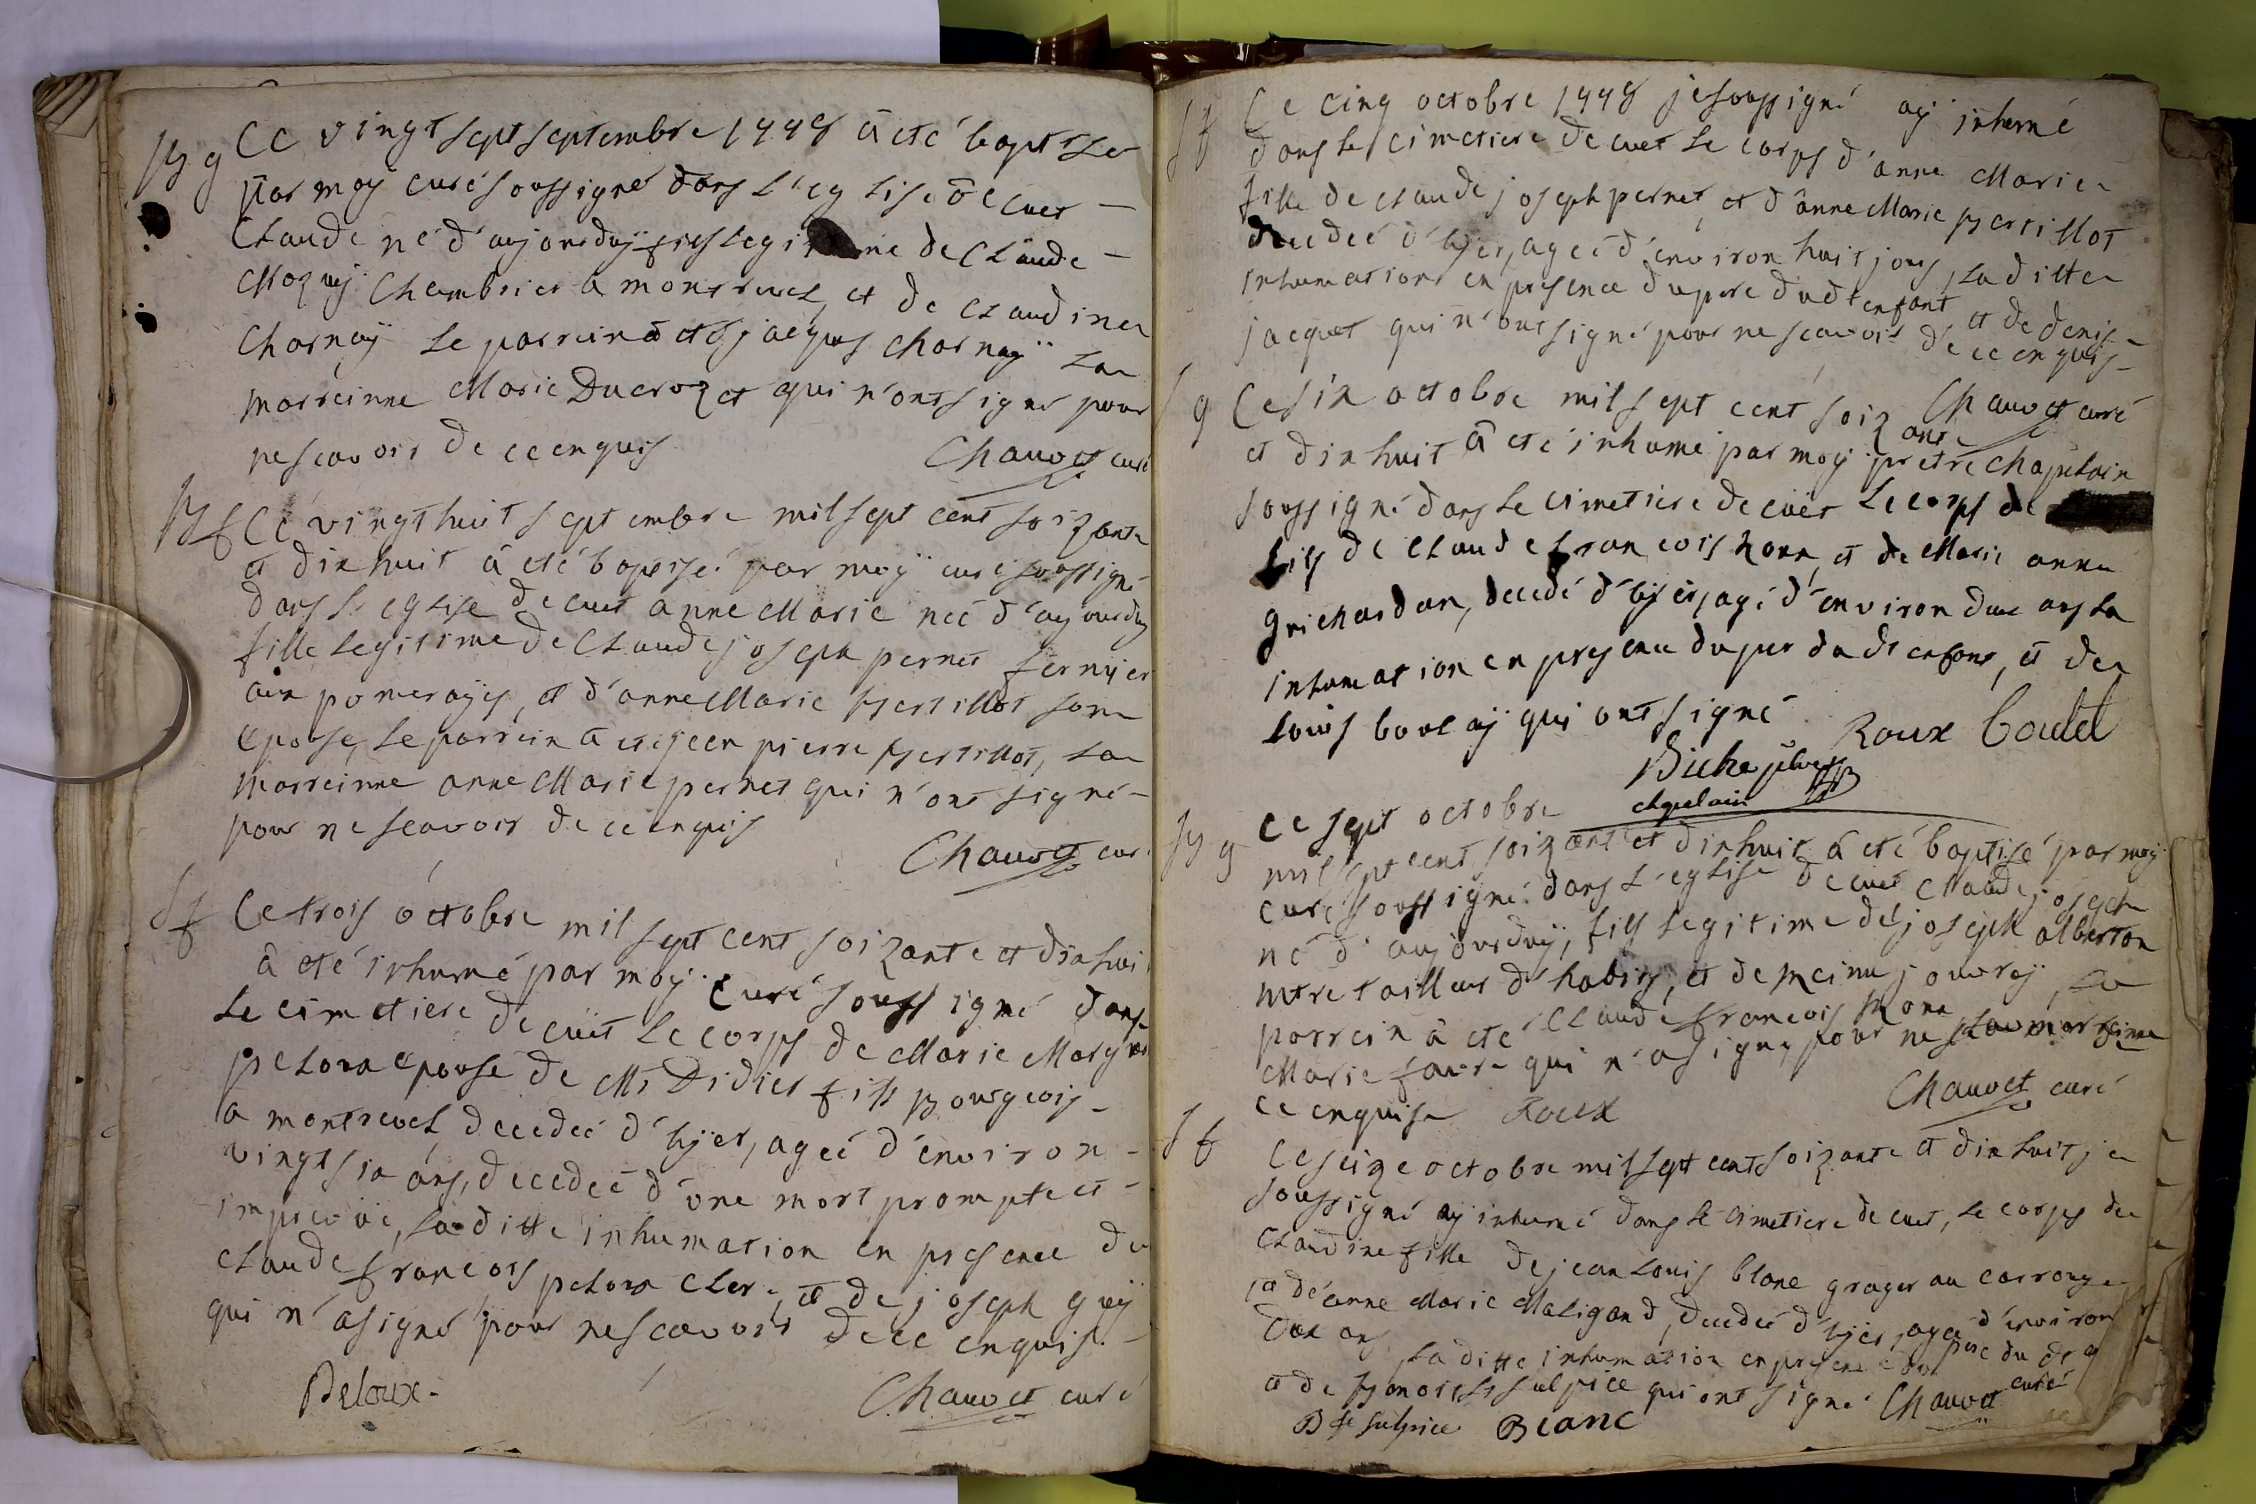 B g Ce vingt sept septembre 1778 a eté baptisé
par moÿ curé soussigné dans l'eglise de cuet
Claude né d'aujourduÿ fils legitime de Claude
Chambrier a montrevel, et de Claudine
Charnaÿ le parrein a eté jacques Charnaÿ la
marreinne Marie Ducrozet qui n'ont signé pour
ne scavoir de ce enquis Chauvet curé
B f Ce vingt huit septembre mil sept cent soizante
et dix huit a eté baptisé par moÿ curé soussigné
dans l'eglise de cuet anne Marie neé d'aujourduÿ
fille legitime de Claude joseph pernet fermier
aux pomeraÿes, et d'anne Marie Bertillot son
epouse, le parrein a eté jean pierre Bertillot, la
Marreinne anne Marie pernet qui n'ont signé
pour ne scavoir de ce enquis
Chauvet curé
S f Ce trois octobre mil sept cent soizante et dixhuit
a eté inhumé par moÿ curé soussigné dans
le cimetiere de cuet le corps de Marie Marg
peloux epouse de Mr Didier fils Bourgeois
a montrevel decedeé d'hÿer, ageé d'environ
vingt six ans, decedeé d'une mort prompte et
imprevüe, la ditte inhumation en presence de
claude francois peloux clerc, et de joseph greÿ
qui n'a signé pour ne scavoir de ce enquis
Peloux Chauvet curé
S f Ce cinq octobre 1778 je soussigné aÿ inhumé
dans le cimetiere de cuet le corps d'anne Marie
fille de claude joseph pernet, et d'anne Marie Bertillot
decedeé d'hÿer, ageé d'environ huit jours, la ditte
inhumation en presence du pere dudt enfant et de denis
jacquet qui n'ont signé pour ne scavoir de ce enquis
Chauvet curé
S g Ce six octobre mil sept cent soizante
et dixhuit a eté inhumé par moÿ pretre chapelain
soussigné dans le cimetiere de cuet le corps de
fils de claude francois roux, et de Marie anne
grichardon, decedé d'hÿer, agé d'environ deux ans la
inhumation en presence du pere dudt enfant, et de
louis boulaÿ qui ont signé
Roux Boulet
Biche pbre
chapelain
B g Ce sept octobre
mil sept cent soizante et dixhuit a eté baptisé par moÿ
curé soussigné dans l'eglise de cuet claude joseph
né d'aujourduÿ, fils legitime de joseph alberton
mtre tailleur d'habits, et de reine jouvreÿ, le
parrein a eté claude francois Roux la marreine
Marie favre qui n'a signé pour ne scavoir de
ce enquise Roux Chauvet curé
S f Ce seize octobre mil sept cent soizante et dixhuit je
soussigné aÿ inhumé dans le cimetiere de cuet, le corps de
claudine fille de jean louis blanc granger au carrouge
et d'anne Marie Maligand, decedeé d'hÿer, ageé d'environ
deux ans, la ditte inhumation en presence du pere du dt
et de Benoist St sulpice qui ont signé Chauvet curé
B St Sulpice Blanc